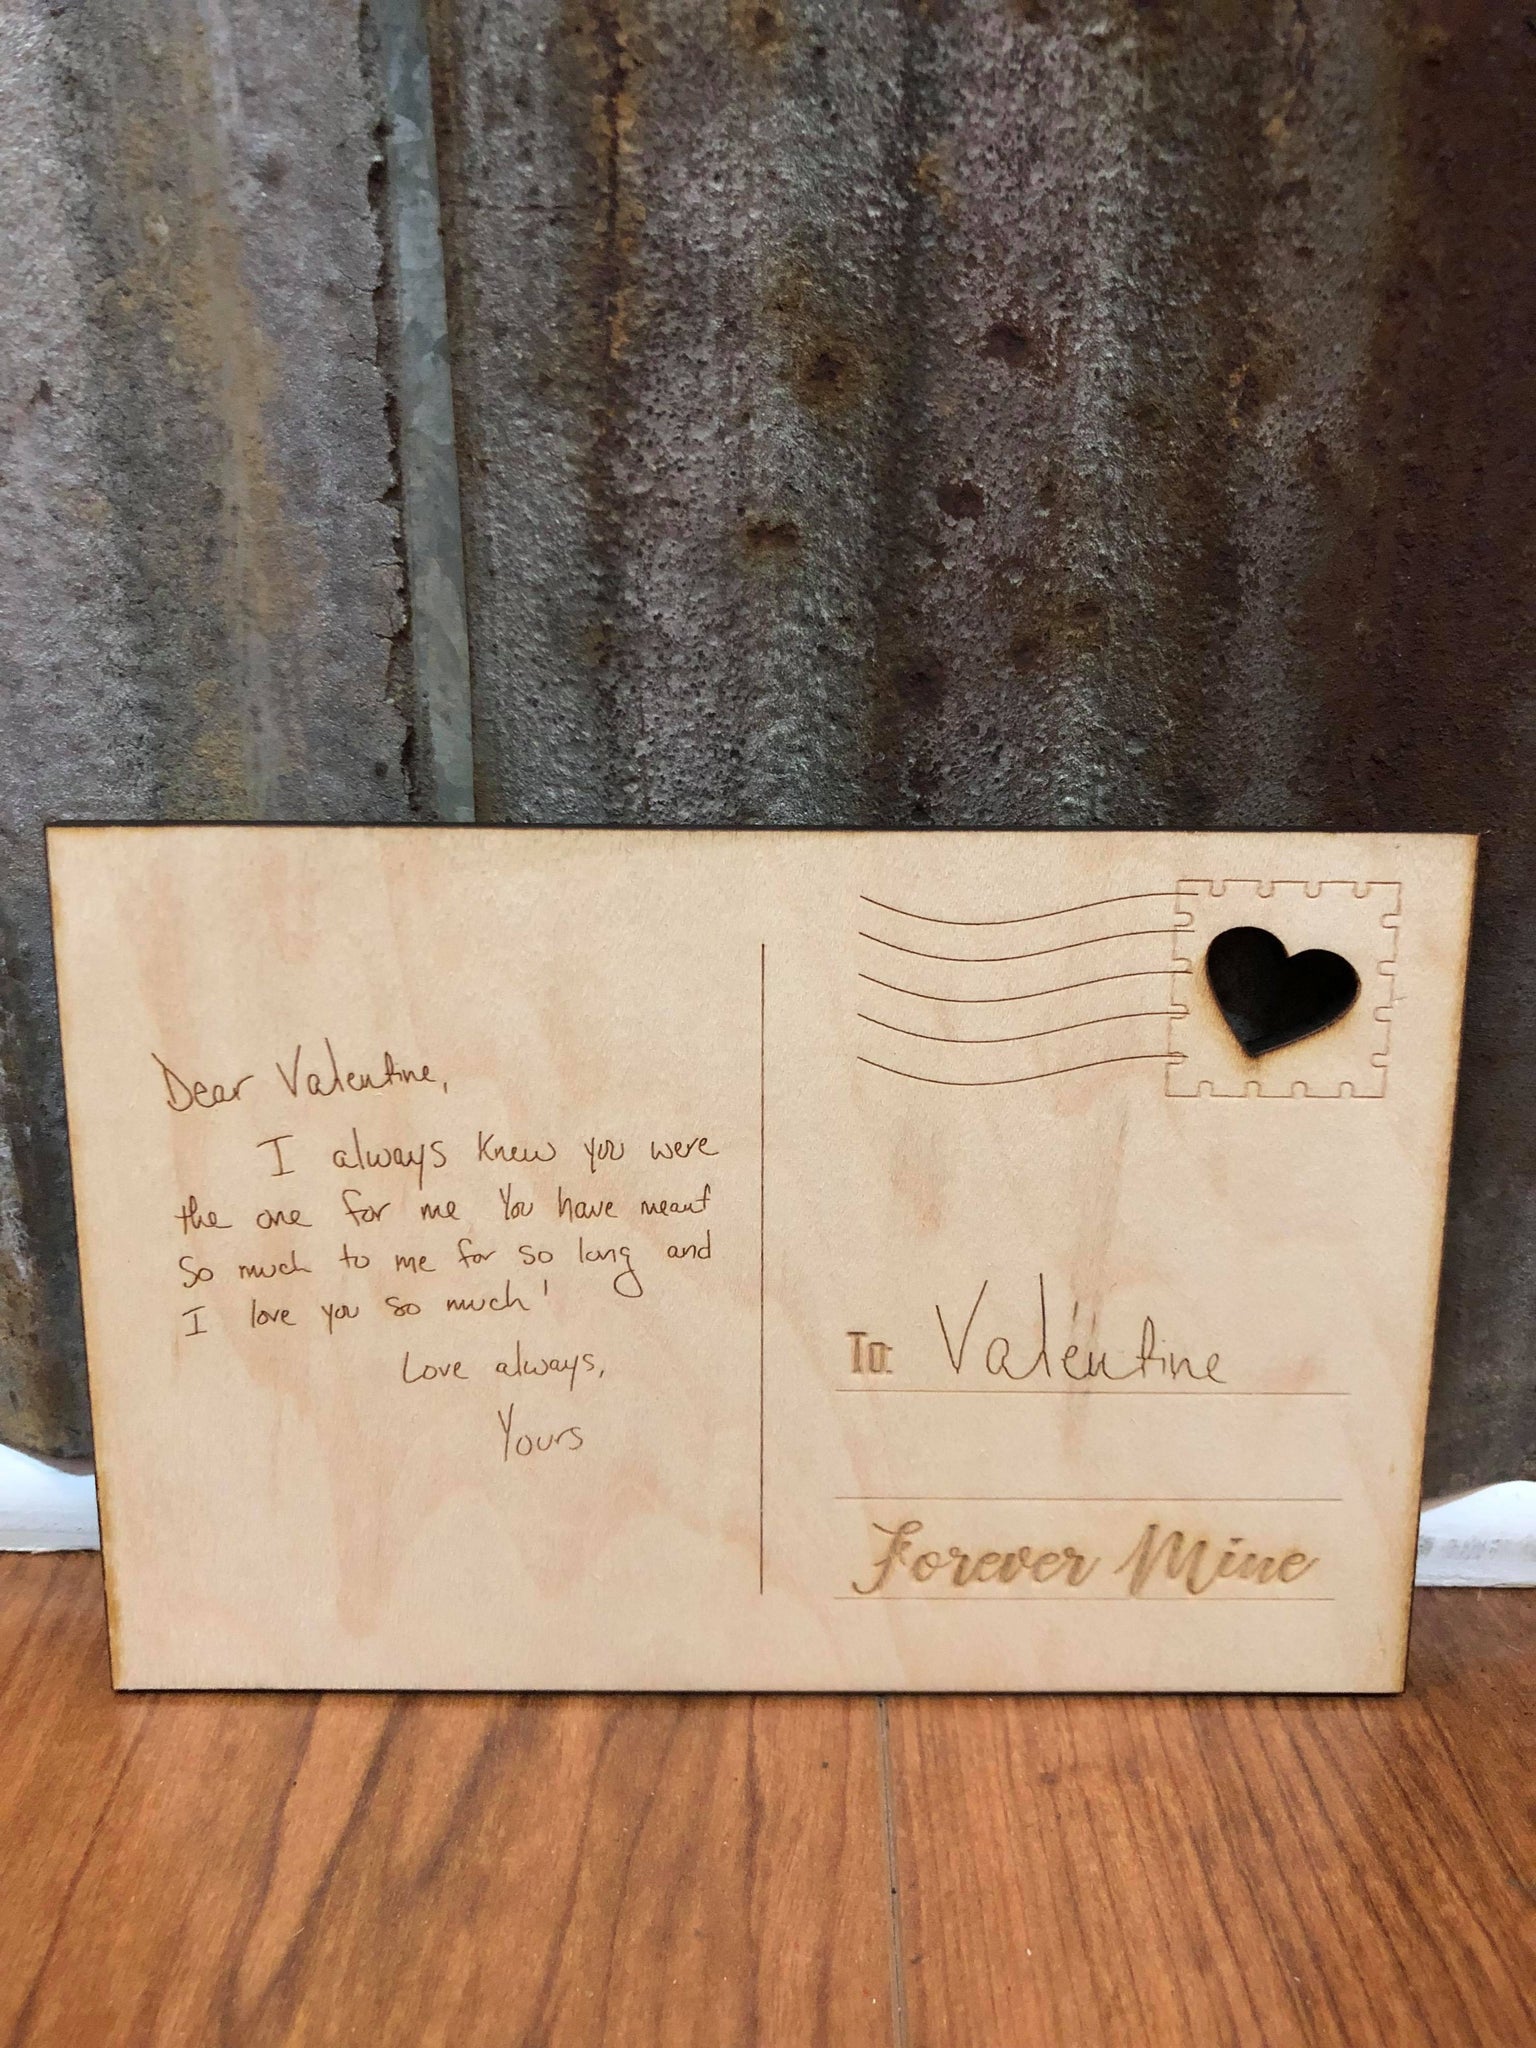 Dear Valentine,
I always knew you were
the one for me You have meant
So much to me for so long and
I love you so much!
Love always,
Yours
To: Valentine
Forever Mine